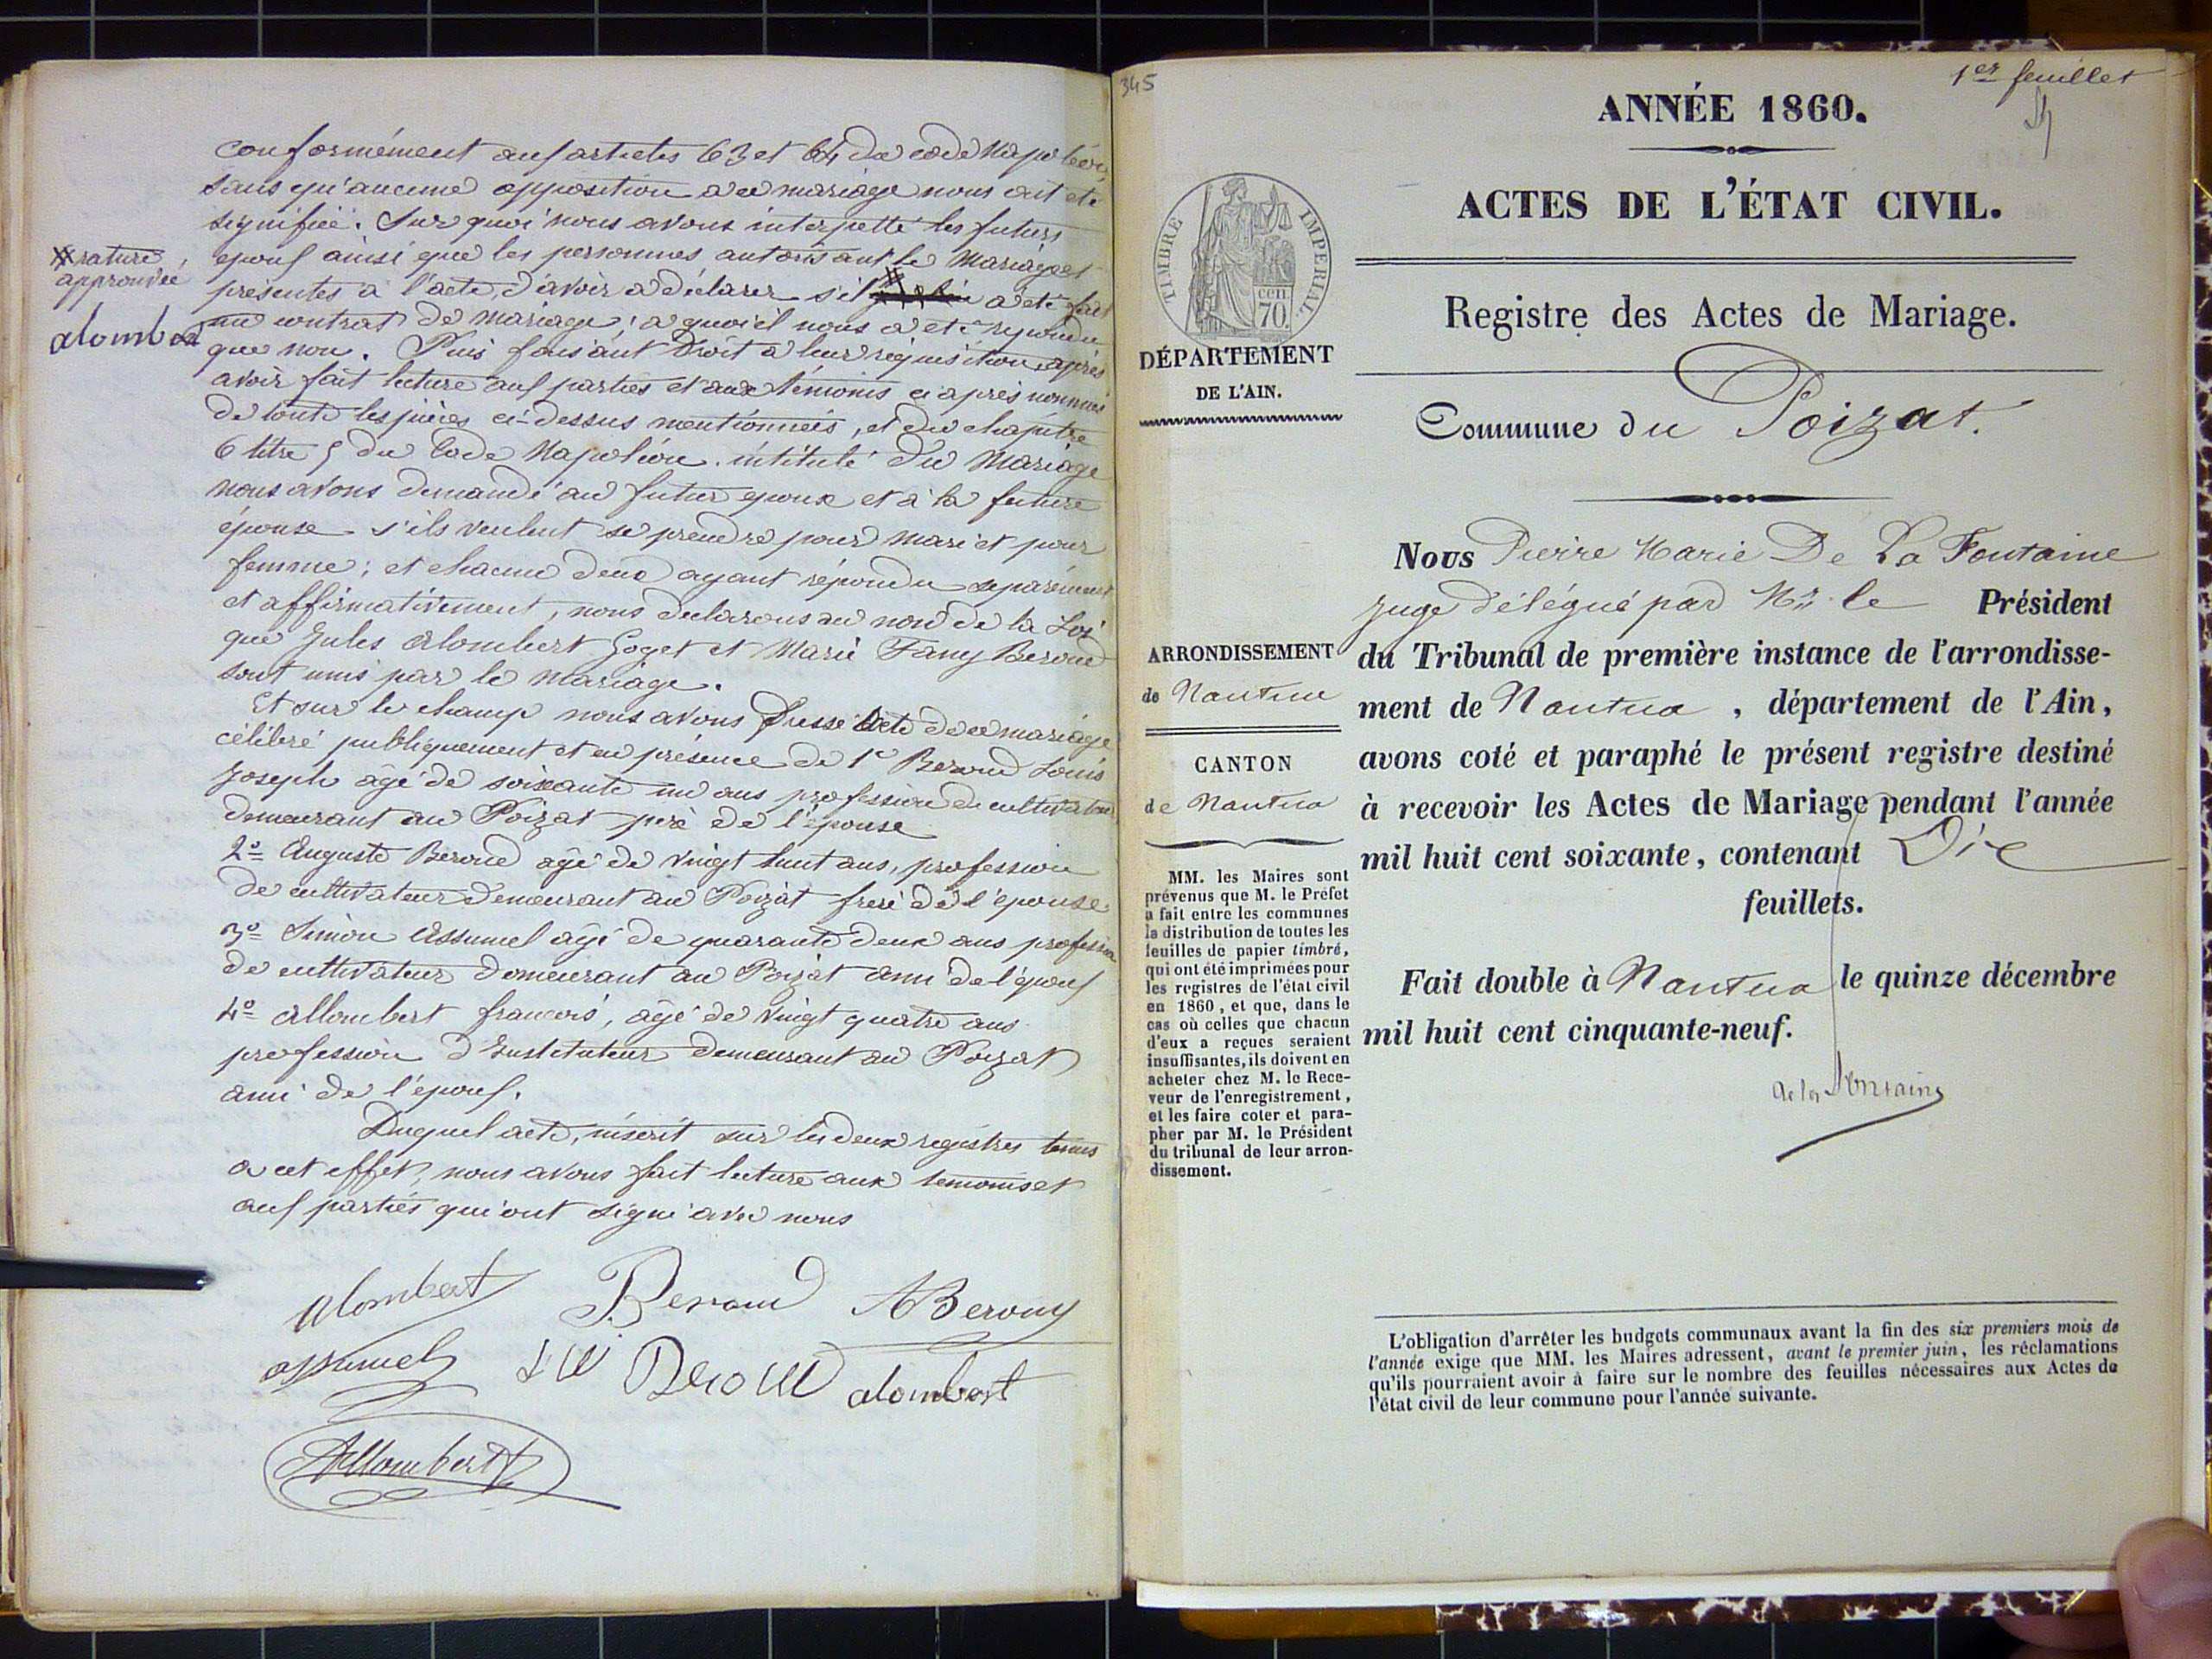 conformément aux articles 63 et 64 du code Napoléon,
sans qu'aucune opposition a ce mariage nous ait été
signifiée. Sur quoi nous avons interpellé les futurs
epoux ainsi que les personnes autorisant le Mariage et
présentes à l'acte, d'avoir a déclarer s'il a été fait
un contrat de mariage; a quoi il nous a été répondu
que non. Puis faisant droit a leur réquisition après
avoir fait lecture aux parties et aux témoins ci après nommés
de toute les pièces ci-dessus mentionnées, et du chapitre
6 titre 5 du Code Napoléon. intitulé du Mariage
nous avons demandé au futur epoux et à la future
épouse s'ils veulent se prendre pour mari et pour
femme; et chacun deux ayant répondu separément
et affirmativement, nous declarons au nom de la Loi
que Jules Alombert Goget et Marie Fany Beroud
sont unis par le mariage.
Et sur le champ nous avons dressé acte de ce mariage
célébré publiquement et en présence de 1° Beroud Louis
Joseph âgé de soixante un ans profession de cultivateur
demeurant au Poizat père de l'épouse
2° Auguste Beroud agé de vingt huit ans, profession
de cultivateur demeurant au Poizat frere de l'épouse
3° Simon Assumel agé de quarante deux ans profession
de cultivateur demeurant au Poizat ami de l'époux
4° Allombert francois, âgé de vingt quatre ans
profession d'Instituteur demeurant au Poizat
ami de l'époux.
Duquel acte, inscrit sur les deux registres tenus
a cet effet, nous avons fait lecture aux temoins et
aux parties qui ont signé avec nous
rature
approuvée
alombert
alombert Beroud ABeroud
assumel Beroud alombert
Allombert
345
1er feuillet
ANNÉE 1860.
ACTES DE L'ÉTAT CIVIL.
Registre des Actes de Mariage.
Commune du Poizat.
TIMBRE IMPERIAL.
cen
70.
DÉPARTEMENT
DE L'AIN.
ARRONDISSEMENT
de Nantua
CANTON
de Nantua
MM. les Maires sont
prévenus que M. le Préfet
a fait entre les communes
la distribution de toutes les
feuilles de papier timbré,
qui ont été imprimées pour
les registres de l'état civil
en 1860, et que, dans le
cas où celles que chacun
d'eux a reçues seraient
insuffisantes, ils doivent en
acheter chez M. le Rece-
veur de l'enregistrement,
et les faire coter et para-
pher par M. le Président
du tribunal de leur arron-
dissement.
Nous Pierre Marie De La Fontaine
juge délégué par Mr. le Président
du Tribunal de première instance de l'arrondisse-
ment de Nantua, département de l'Ain,
avons coté et paraphé le présent registre destiné
à recevoir les Actes de Mariage pendant l'année
mil huit cent soixante, contenant Dix
feuillets.
Fait double à Nantua le quinze décembre
mil huit cent cinquante-neuf.
de la Fontaine
L'obligation d'arrêter les budgets communaux avant la fin des six premiers mois de
l'année exige que MM. les Maires adressent, avant le premier juin, les réclamations
qu'ils pourraient avoir à faire sur le nombre des feuilles nécessaires aux Actes de
l'état civil de leur commune pour l'année suivante.